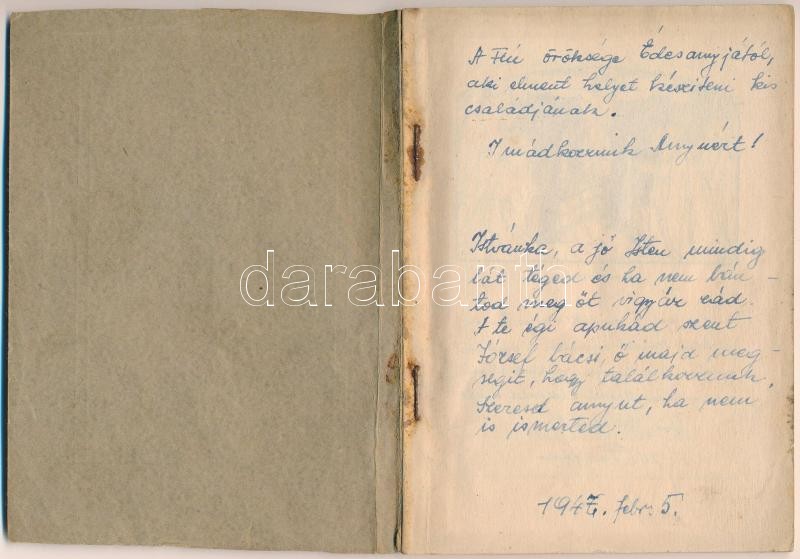 A Fiú öröksége Édesanyjától,
aki elment helyet készíteni kis
családjának.
Imádkozzunk Anyuért!
Istvánka, a jó Isten mindig
lát téged és ha nem bán-
tod meg őt vigyáz rád.
A te égi apukád szent
József bácsi, ő majd meg-
segit, hogy találkozzunk.
Szeresd anyut, ha nem
is ismerted.
1947. febr. 5.
darabanth